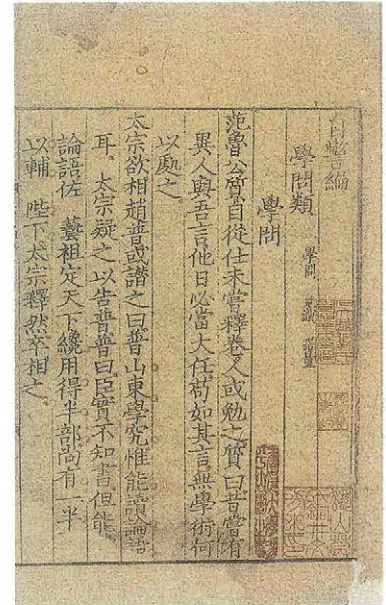 自警編
學問類 學問
學問
范魯公質自從仕未嘗釋卷人或勉之質曰昔嘗有
異人與吾言他日必當大任苟如其言無學術何
以處之
太宗欲相趙普或譖之曰普山東學究惟能讀論語
耳 太宗疑之以告普普曰臣實不知書但能
論語佐 藝祖定天下纔用得半部尚有一半
以輔 陛下太宗釋然卒相之